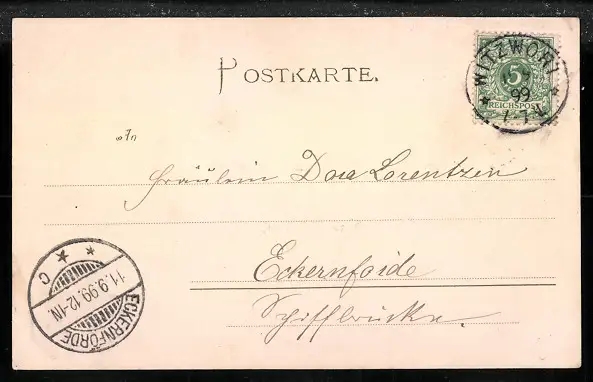 POSTKARTE.
WITZWORT
99
7-7
5
REICHSPOST
Fräulein Dora Lorentzen
Eckernförde
Schiffbrücke.
ECKERNFÖRDE
11.9.99.12-1N.
C